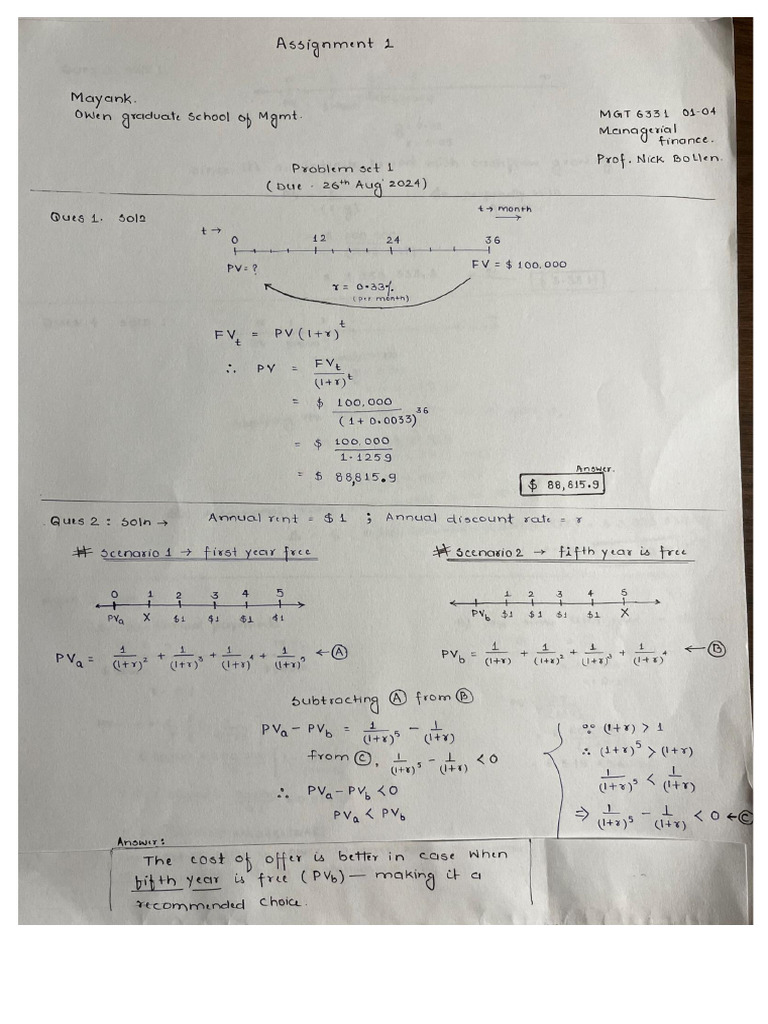 Assignment 1
Mayank.
Owen graduate School of Mgmt.
MGT 6331 01-04
Managerial
finance.
Prof. Nick Bollen.
Problem set 1
(Due - 26th Aug' 2024)
Ques 1. Soln
t → month
t →
0 12 24 36
PV = ? FV = $ 100,000
r = 0.33%
(per month)
FVt = PV (1+r)^t
∴ PV = FVt / (1+r)^t
= $ 100,000 / (1 + 0.0033)^36
= $ 100,000 / 1.1259
= $ 88,815.9
Answer.
$ 88,815.9
Ques 2 : Soln → Annual rent = $ 1 ; Annual discount rate = r
# Scenario 1 → first year free
0 1 2 3 4 5
PVa X $1 $1 $1 $1
PVa = 1/(1+r)^2 + 1/(1+r)^3 + 1/(1+r)^4 + 1/(1+r)^5 ← Ⓐ
# Scenario 2 → fifth year is free
1 2 3 4 5
PVb $1 $1 $1 $1 X
PVb = 1/(1+r) + 1/(1+r)^2 + 1/(1+r)^3 + 1/(1+r)^4 ← Ⓑ
Subtracting Ⓐ from Ⓑ
PVa - PVb = 1/(1+r)^5 - 1/(1+r)
from Ⓒ, 1/(1+r)^5 - 1/(1+r) < 0
∴ PVa - PVb < 0
PVa < PVb
∵ (1+r) > 1
∴ (1+r)^5 > (1+r)
1/(1+r)^5 < 1/(1+r)
⇒ 1/(1+r)^5 - 1/(1+r) < 0 ← Ⓒ
Answer:
The cost of offer is better in case when
fifth year is free (PVb) — making it a
recommended choice.